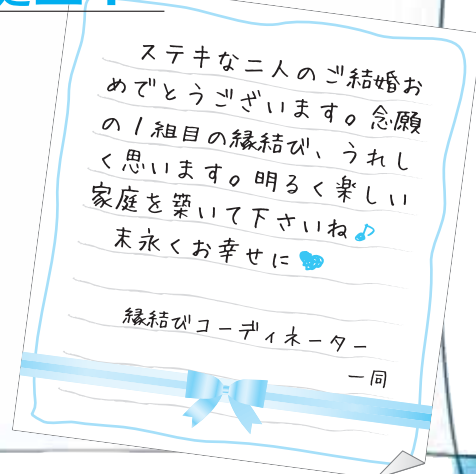 ステキな二人のご結婚お
めでとうございます。念願
の1組目の縁結び、うれし
く思います。明るく楽しい
家庭を築いて下さいね♪
末永くお幸せに
縁結びコーディネーター
一同